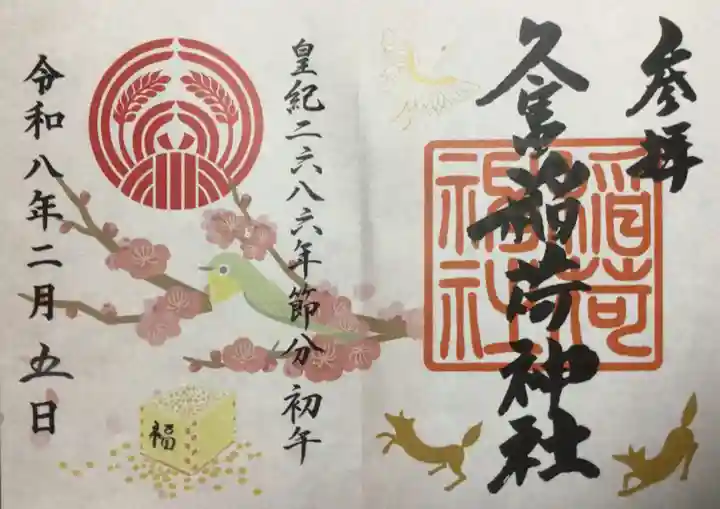 参拝
久富稲荷神社
稲荷
神社
皇紀二六八六年節分 初午
令和八年二月五日
福